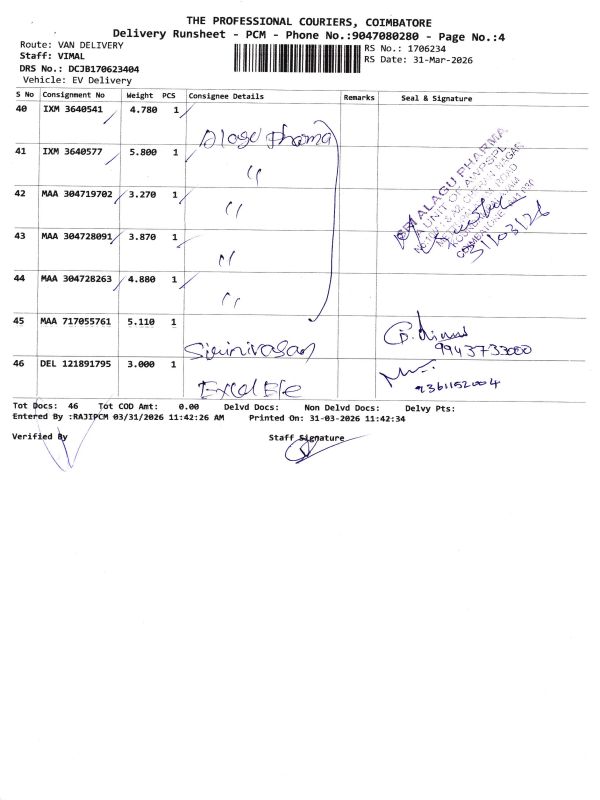 THE PROFESSIONAL COURIERS, COIMBATORE
Delivery Runsheet - PCM - Phone No.:9047080280 - Page No.:4
Route: VAN DELIVERY
RS No.: 1706234
Staff: VIMAL
RS Date: 31-Mar-2026
DRS No.: DCJB170623404
Vehicle: EV Delivery
S No Consignment No Weight PCS Consignee Details Remarks Seal & Signature
40 IXM 3640541 4.780 1 Alagu Pharma
41 IXM 3640577 5.800 1 "
42 MAA 304719702 3.270 1 "
43 MAA 304728091 3.870 1 "
44 MAA 304728263 4.880 1 "
SRI ALAGU PHARMA
A UNIT OF AWPSPL
31/03/26
45 MAA 717055761 5.110 1 Sirinivasan 9943733000
46 DEL 121891795 3.000 1 Excel Efe 9361152004
Tot Docs: 46 Tot COD Amt: 0.00 Delvd Docs: Non Delvd Docs: Delvy Pts:
Entered By :RAJIPCM 03/31/2026 11:42:26 AM Printed On: 31-03-2026 11:42:34
Verified By Staff Signature